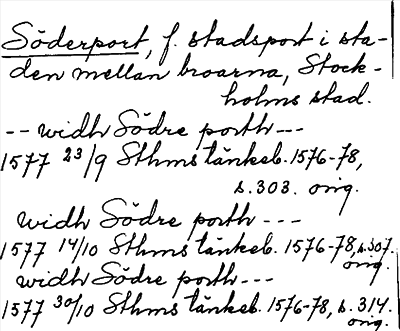 Söderport, f. stadsport i sta-
den mellan broarna, Stock-
holms stad.
-- widh Södre porth ---
1577 23/9 Sthms tänkeb. 1576-78,
s. 303. orig.
widh Södre porth ---
1577 14/10 Sthms tänkeb. 1576-78, s. 307.
orig.
widh Södre porth ---
1577 30/10 Sthms tänkeb. 1576-78, s. 314.
orig.